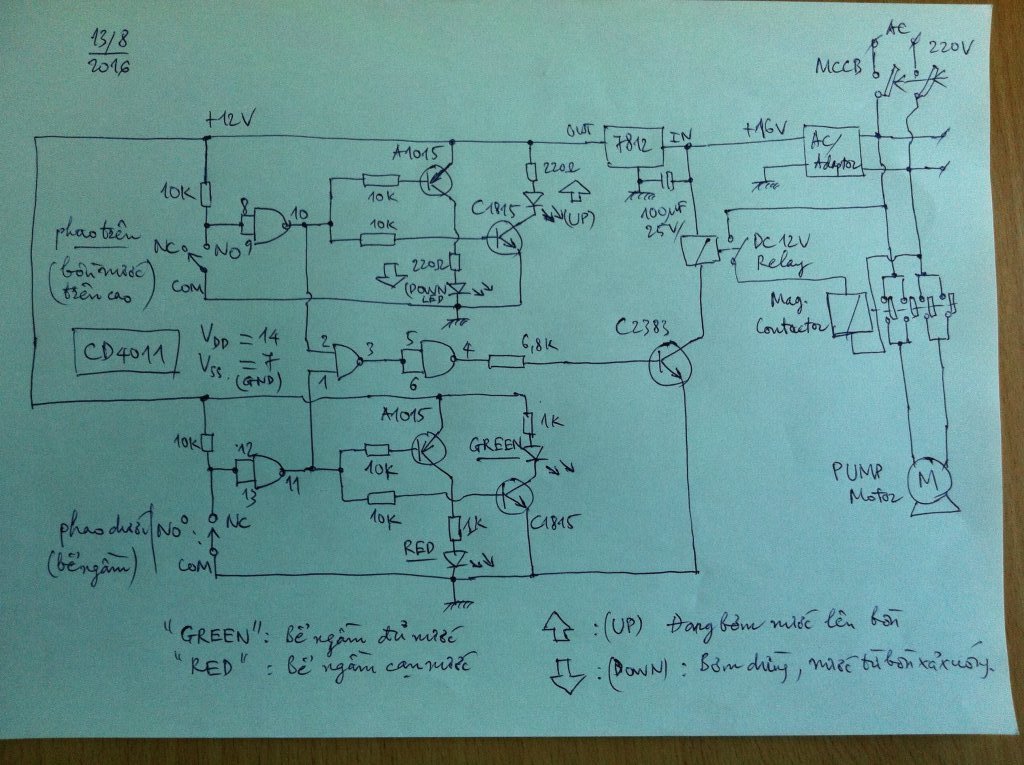 13/8
2016
AC
220V
MCCB
+12V
OUT
7812
IN
+16V
AC/
Adaptor
A1015
10K
8
9
10
10K
10K
C1815
220Ω
(UP)
100µF
25V
phao trên
(bồn nước
trên cao)
NC
NO
COM
220Ω
(DOWN
LED
DC 12V
Relay
Mag.
Contactor
CD4011
VDD = 14
VSS = 7
(GND)
2
1
3
5
6
4
6,8K
C2383
10K
12
13
11
A1015
10K
10K
1K
GREEN
C1815
1K
RED
PUMP
Motor
M
phao dưới
(bể ngầm)
NO
NC
COM
"GREEN": Bể ngầm đủ nước
"RED" : Bể ngầm cạn nước
: (UP) Đang bơm nước lên bồn
: (DOWN) : Bơm dừng, nước từ bồn xả xuống.